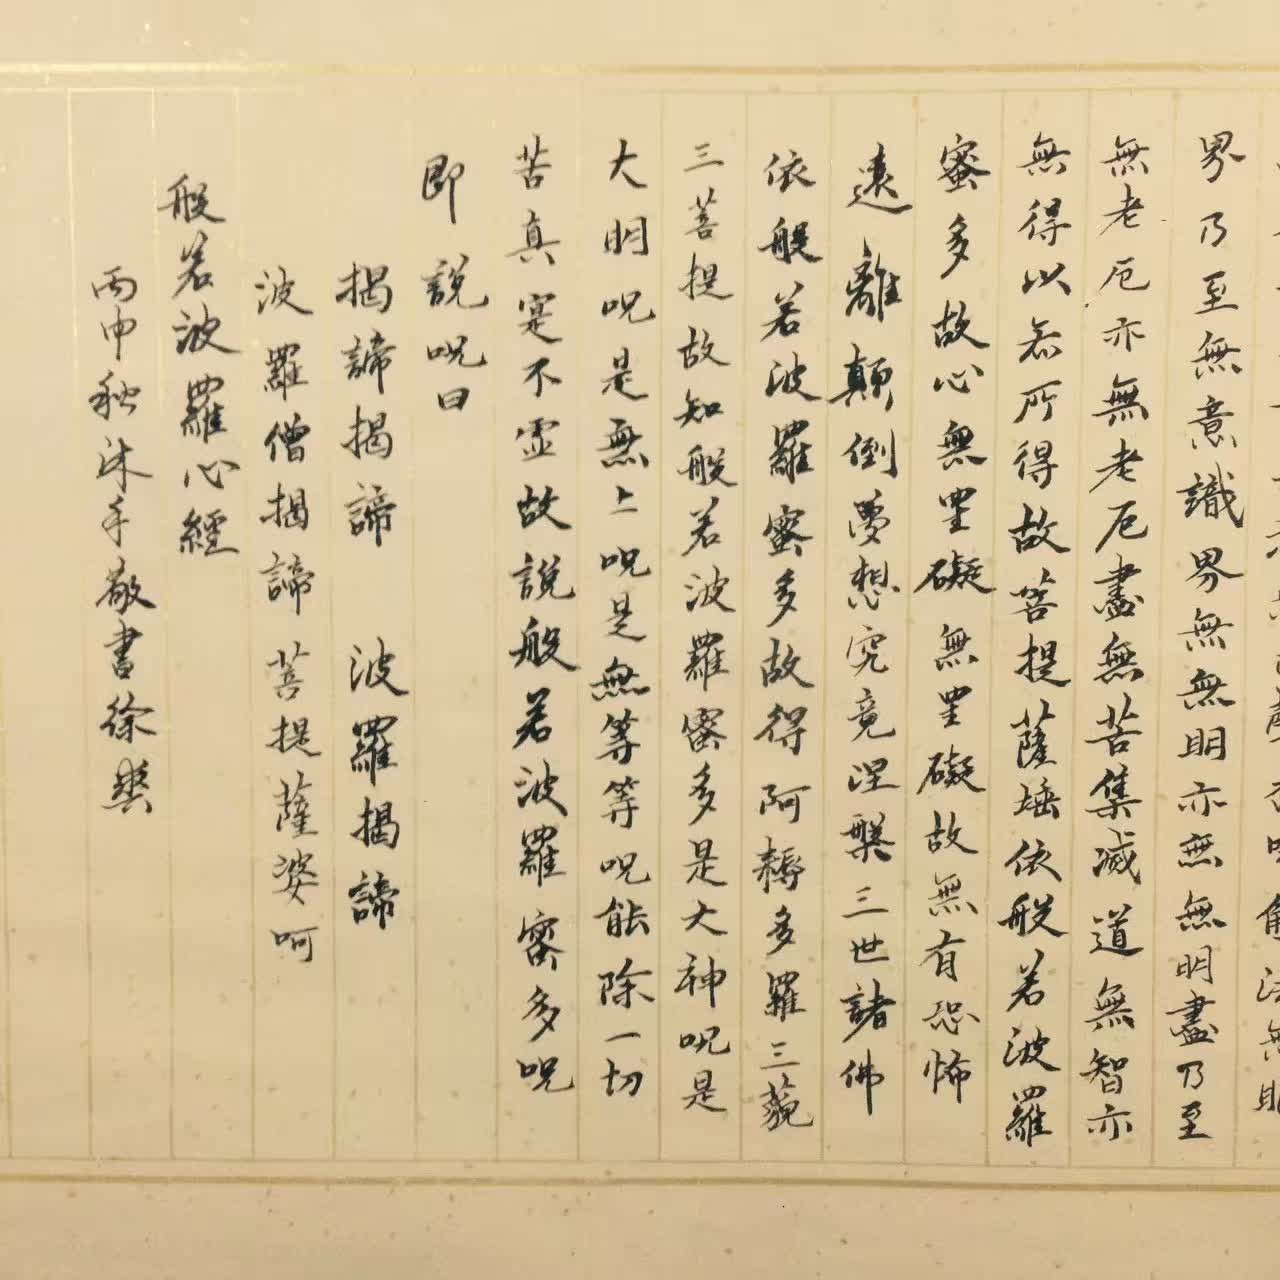 界乃至無意識界無無明亦無無明盡乃至
無老死亦無老死盡無苦集滅道無智亦
無得以無所得故菩提薩埵依般若波羅
蜜多故心無罣礙無罣礙故無有恐怖
遠離顛倒夢想究竟涅槃三世諸佛
依般若波羅蜜多故得阿耨多羅三藐
三菩提故知般若波羅蜜多是大神呪是
大明呪是無上呪是無等等呪能除一切
苦真寔不虛故說般若波羅蜜多呪
即說呪曰
揭諦揭諦 波羅揭諦
波羅僧揭諦 菩提薩婆呵
般若波羅心經
丙申秋沐手敬書徐